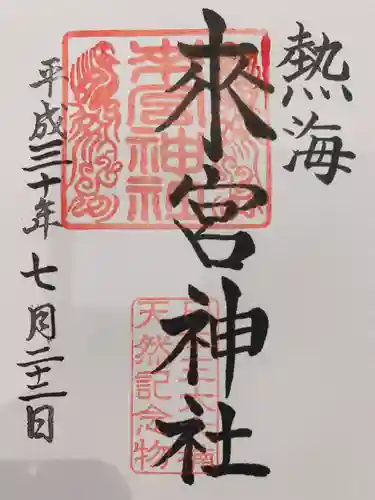 熱海
來宮神社
來宮神社
天然記念物
平成三十年七月二十二日